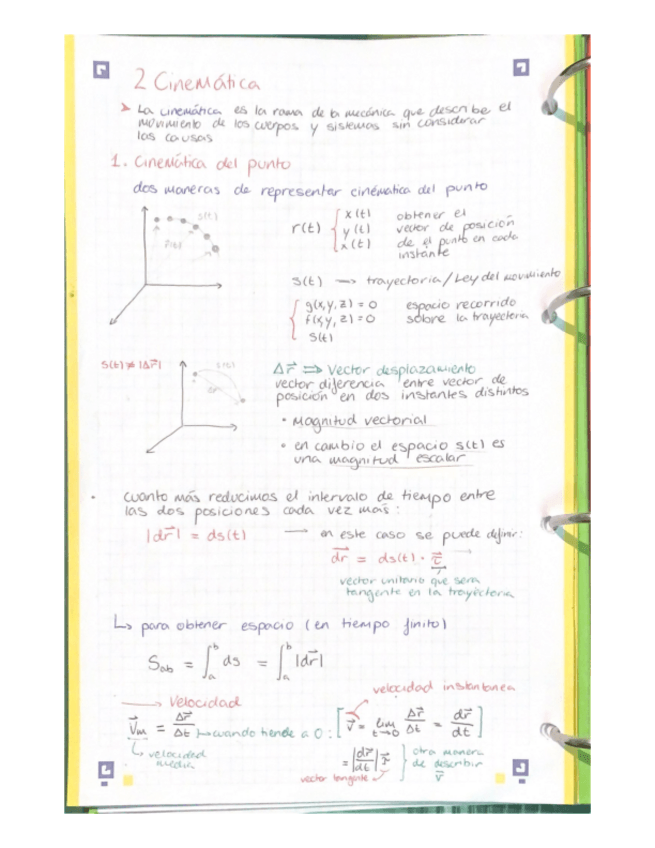 2 Cinemática
➤ La cinemática es la rama de la mecánica que describe el
movimiento de los cuerpos y sistemas sin considerar
las causas
1. Cinemática del punto
dos maneras de representar cinématica del punto
s(t)
r(t) { x(t)
y(t)
x(t)
obtener el
vector de posición
de el punto en cada
instante
s(t) → trayectoria/Ley del movimiento
{ g(x,y,z) = 0
f(x,y,z) = 0
s(t)
espacio recorrido
sobre la trayectoria
s(t) ≠ |Δr⃗|
Δr⃗ ⇒ Vector desplazamiento
vector diferencia entre vector de
posición en dos instantes distintos
• Magnitud vectorial
• en cambio el espacio s(t) es
una magnitud escalar
• cuanto más reducimos el intervalo de tiempo entre
las dos posiciones cada vez mas:
|dr⃗| = ds(t) → en este caso se puede definir:
dr⃗ = ds(t) · τ⃗
vector unitario que sera
tangente en la trayectoria
↳ para obtener espacio (en tiempo finito)
Sab = ∫ₐᵇ ds = ∫ₐᵇ |dr⃗|
→ Velocidad
velocidad instantanea
V⃗m = Δr⃗/Δt ↦ cuando tiende a 0: [ v⃗ = lim t→0 Δr⃗/Δt = dr⃗/dt ]
↳ velocidad
media
= |dr⃗/dt| τ⃗
vector tangente
} otra manera
de describir
v⃗